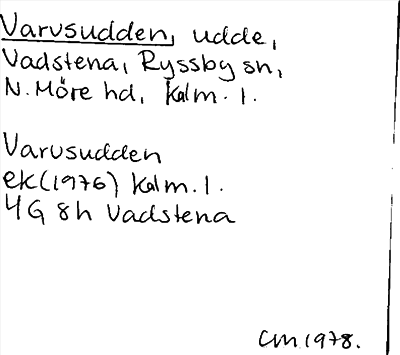 Varvsudden, udde,
Vadstena, Ryssby sn,
N. Möre hd, Kalm. l.
Varvsudden
ek (1976) Kalm. l.
4G 8h Vadstena
CM 1978.